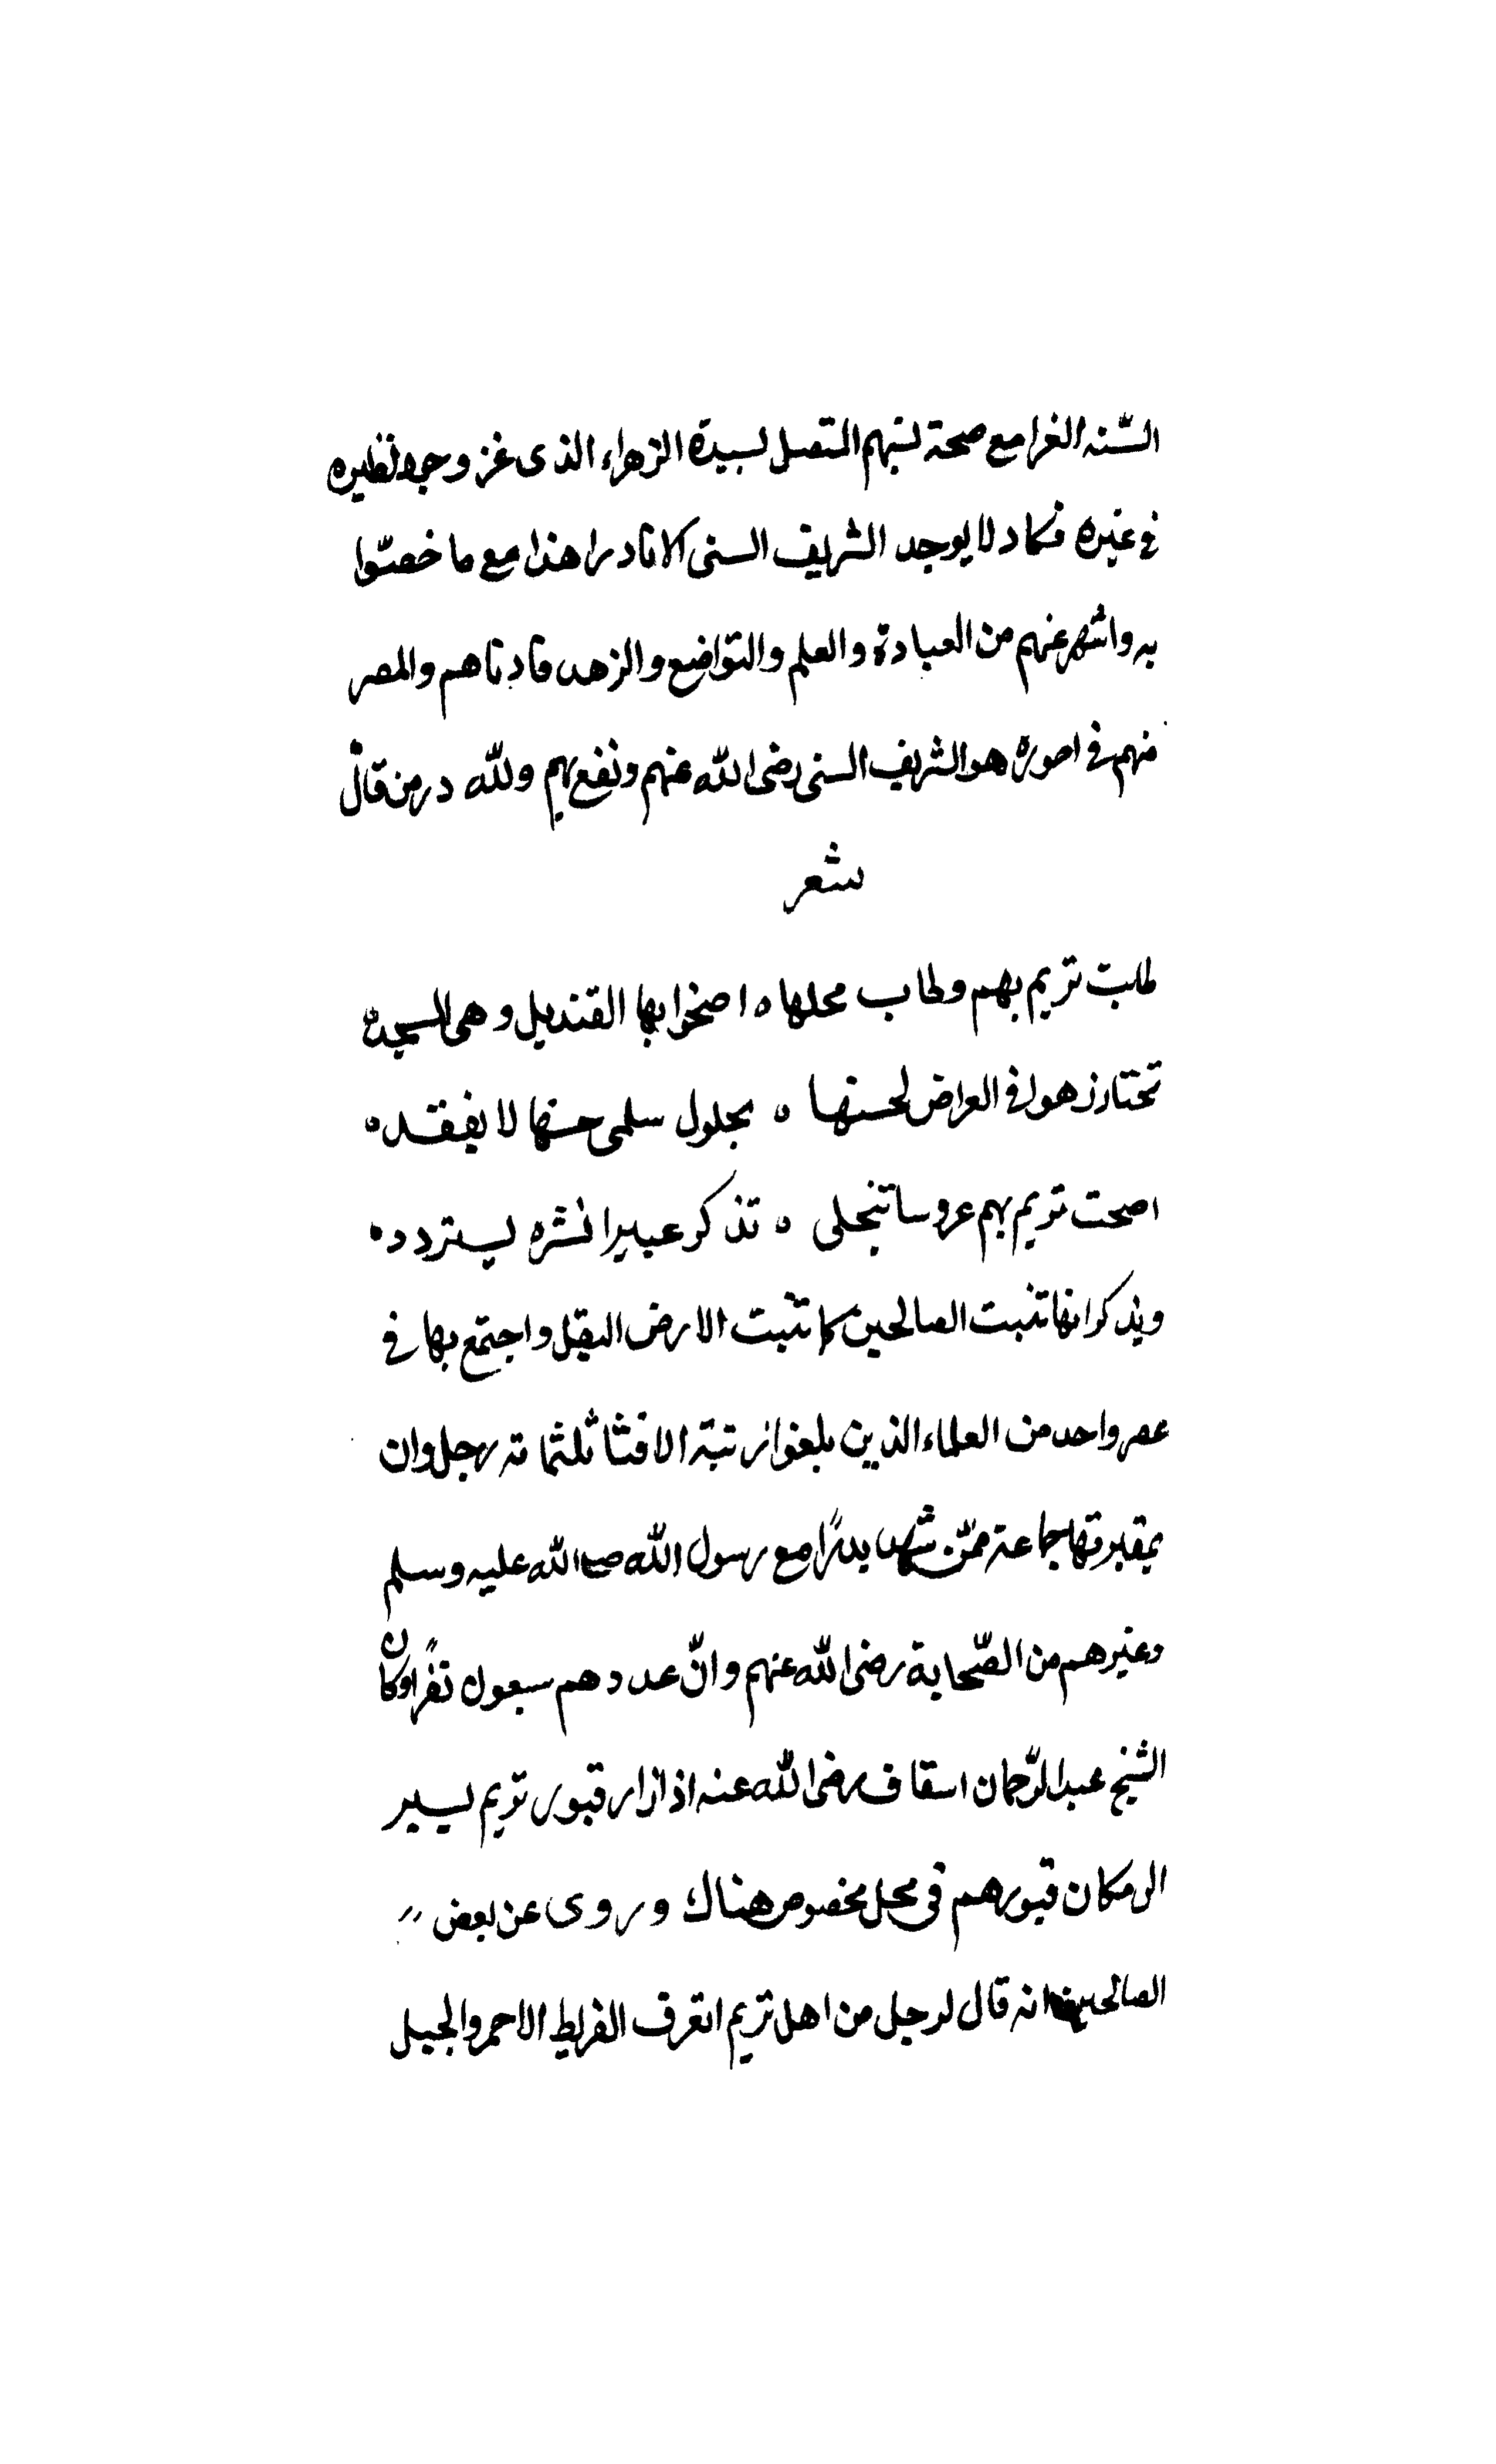 السّنه الغرا مع صحة نسبهم المتصل لسيدة الزهراء الذى عز وجود نظيره
فى غيره فكاد لا يوجد الشريف السنى الا نادرا هذا مع ما خصّوا
به واشتهر عنهم من العبادة والعلم والتواضع والزهد فادناهم والمصر
منهم فى اموره هو الشريف السنى رضى الله عنهم ونفع بهم ولله در من قال
شعر
طلبت تريم بهم وطاب محلها ه اضخوا بها القنديل وهى المسجده
تختار زهوا فى العراض لحسنها ه بحلول سلمى حسنها لا يفقده
اصحت تريم بهم عروسا تنجلى ه تذكر عبيرا نشره يستردده
ويذكر انها تنبت الصالحين كما تنبت الارض البقل واجتمع بها فى
عصر واحد من العلماء الذين بلغوا رتبة الافتا ثلثمائه رجل وان
بمقبرتها جماعة ممّن شهد بدرًا مع رسول الله صلى الله عليه وسلم
وغيرهم من الصّحابة رضى الله عنهم وانّ عددهم سبعون نفرًا وكان
الشيخ عبد الرّحمان السقاف رضى الله عنه اذا زار قبور تريم يسير
الى مكان قبورهم فى محل مخصوص هناك وروى عن بعض
الصالحين انه قال لرجل من اهل تريم اتعرف الفريط الاحمر والجبل